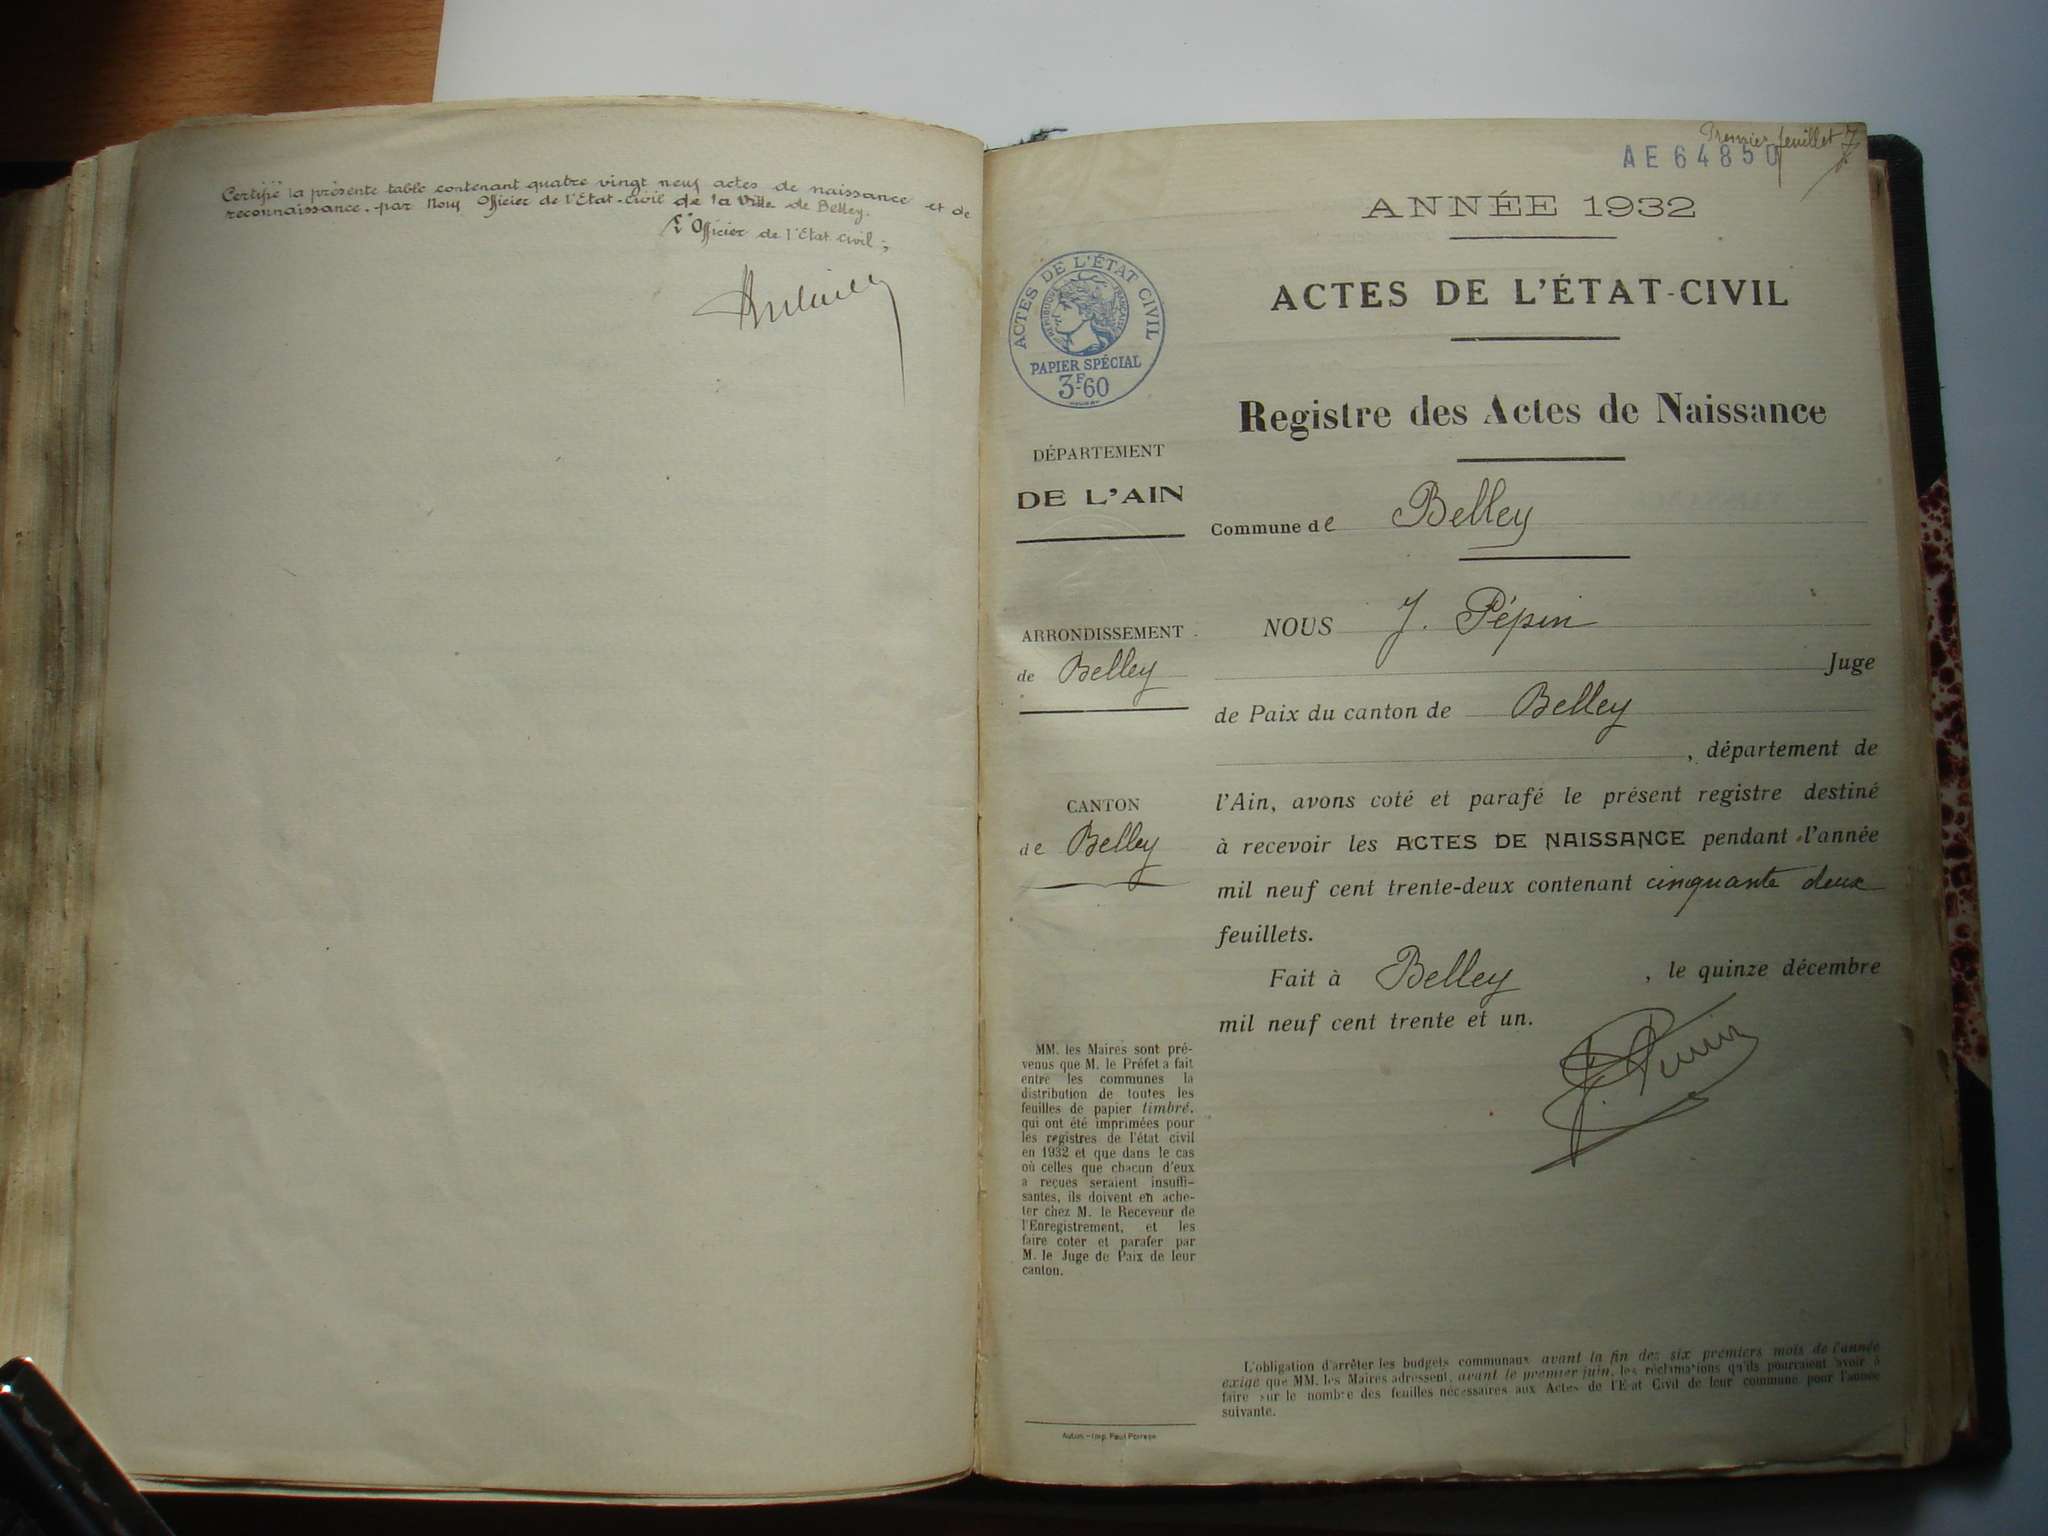 Certifié la présente table contenant quatre vingt neuf actes de naissance et de
reconnaissance, par Nous Officier de l'Etat-Civil de la Ville de Belley.
L'Officier de l'Etat civil;
Premier feuillet
AE64850
ANNÉE 1932
ACTES DE L'ÉTAT-CIVIL
ACTES DE L'ÉTAT CIVIL
RÉPUBLIQUE FRANÇAISE
PAPIER SPÉCIAL
3F60
Registre des Actes de Naissance
DÉPARTEMENT
DE L'AIN
Commune de Belley
ARRONDISSEMENT
de Belley
CANTON
de Belley
NOUS J. Pépin
Juge
de Paix du canton de Belley
, département de
l'Ain, avons coté et parafé le présent registre destiné
à recevoir les ACTES DE NAISSANCE pendant l'année
mil neuf cent trente-deux contenant cinquante deux
feuillets.
Fait à Belley, le quinze décembre
mil neuf cent trente et un.
J. Pépin
MM. les Maires sont pré-
venus que M. le Préfet a fait
entre les communes la
distribution de toutes les
feuilles de papier timbré,
qui ont été imprimées pour
les registres de l'état civil
en 1932 et que dans le cas
où celles que chacun d'eux
a reçues seraient insuffi-
santes, ils doivent en ache-
ter chez M. le Receveur de
l'Enregistrement, et les
faire coter et parafer par
M. le Juge de Paix de leur
canton.
L'obligation d'arrêter les budgets communaux avant la fin des six premiers mois de l'année
exige que MM. les Maires adressent, avant le premier juin, les réclamations qu'ils pourraient avoir à
faire sur le nombre des feuilles nécessaires aux Actes de l'Etat Civil de leur commune pour l'année
suivante.
Autun. - Imp. Paul Perrase